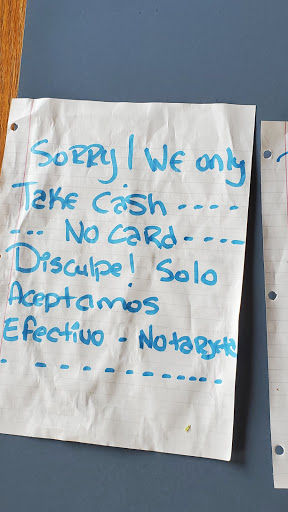 Sorry! We only
Take Cash ----
--- No Card ----
Disculpe! Solo
Aceptamos
Efectivo - No tarjeta
- - - - - - - - - - - -